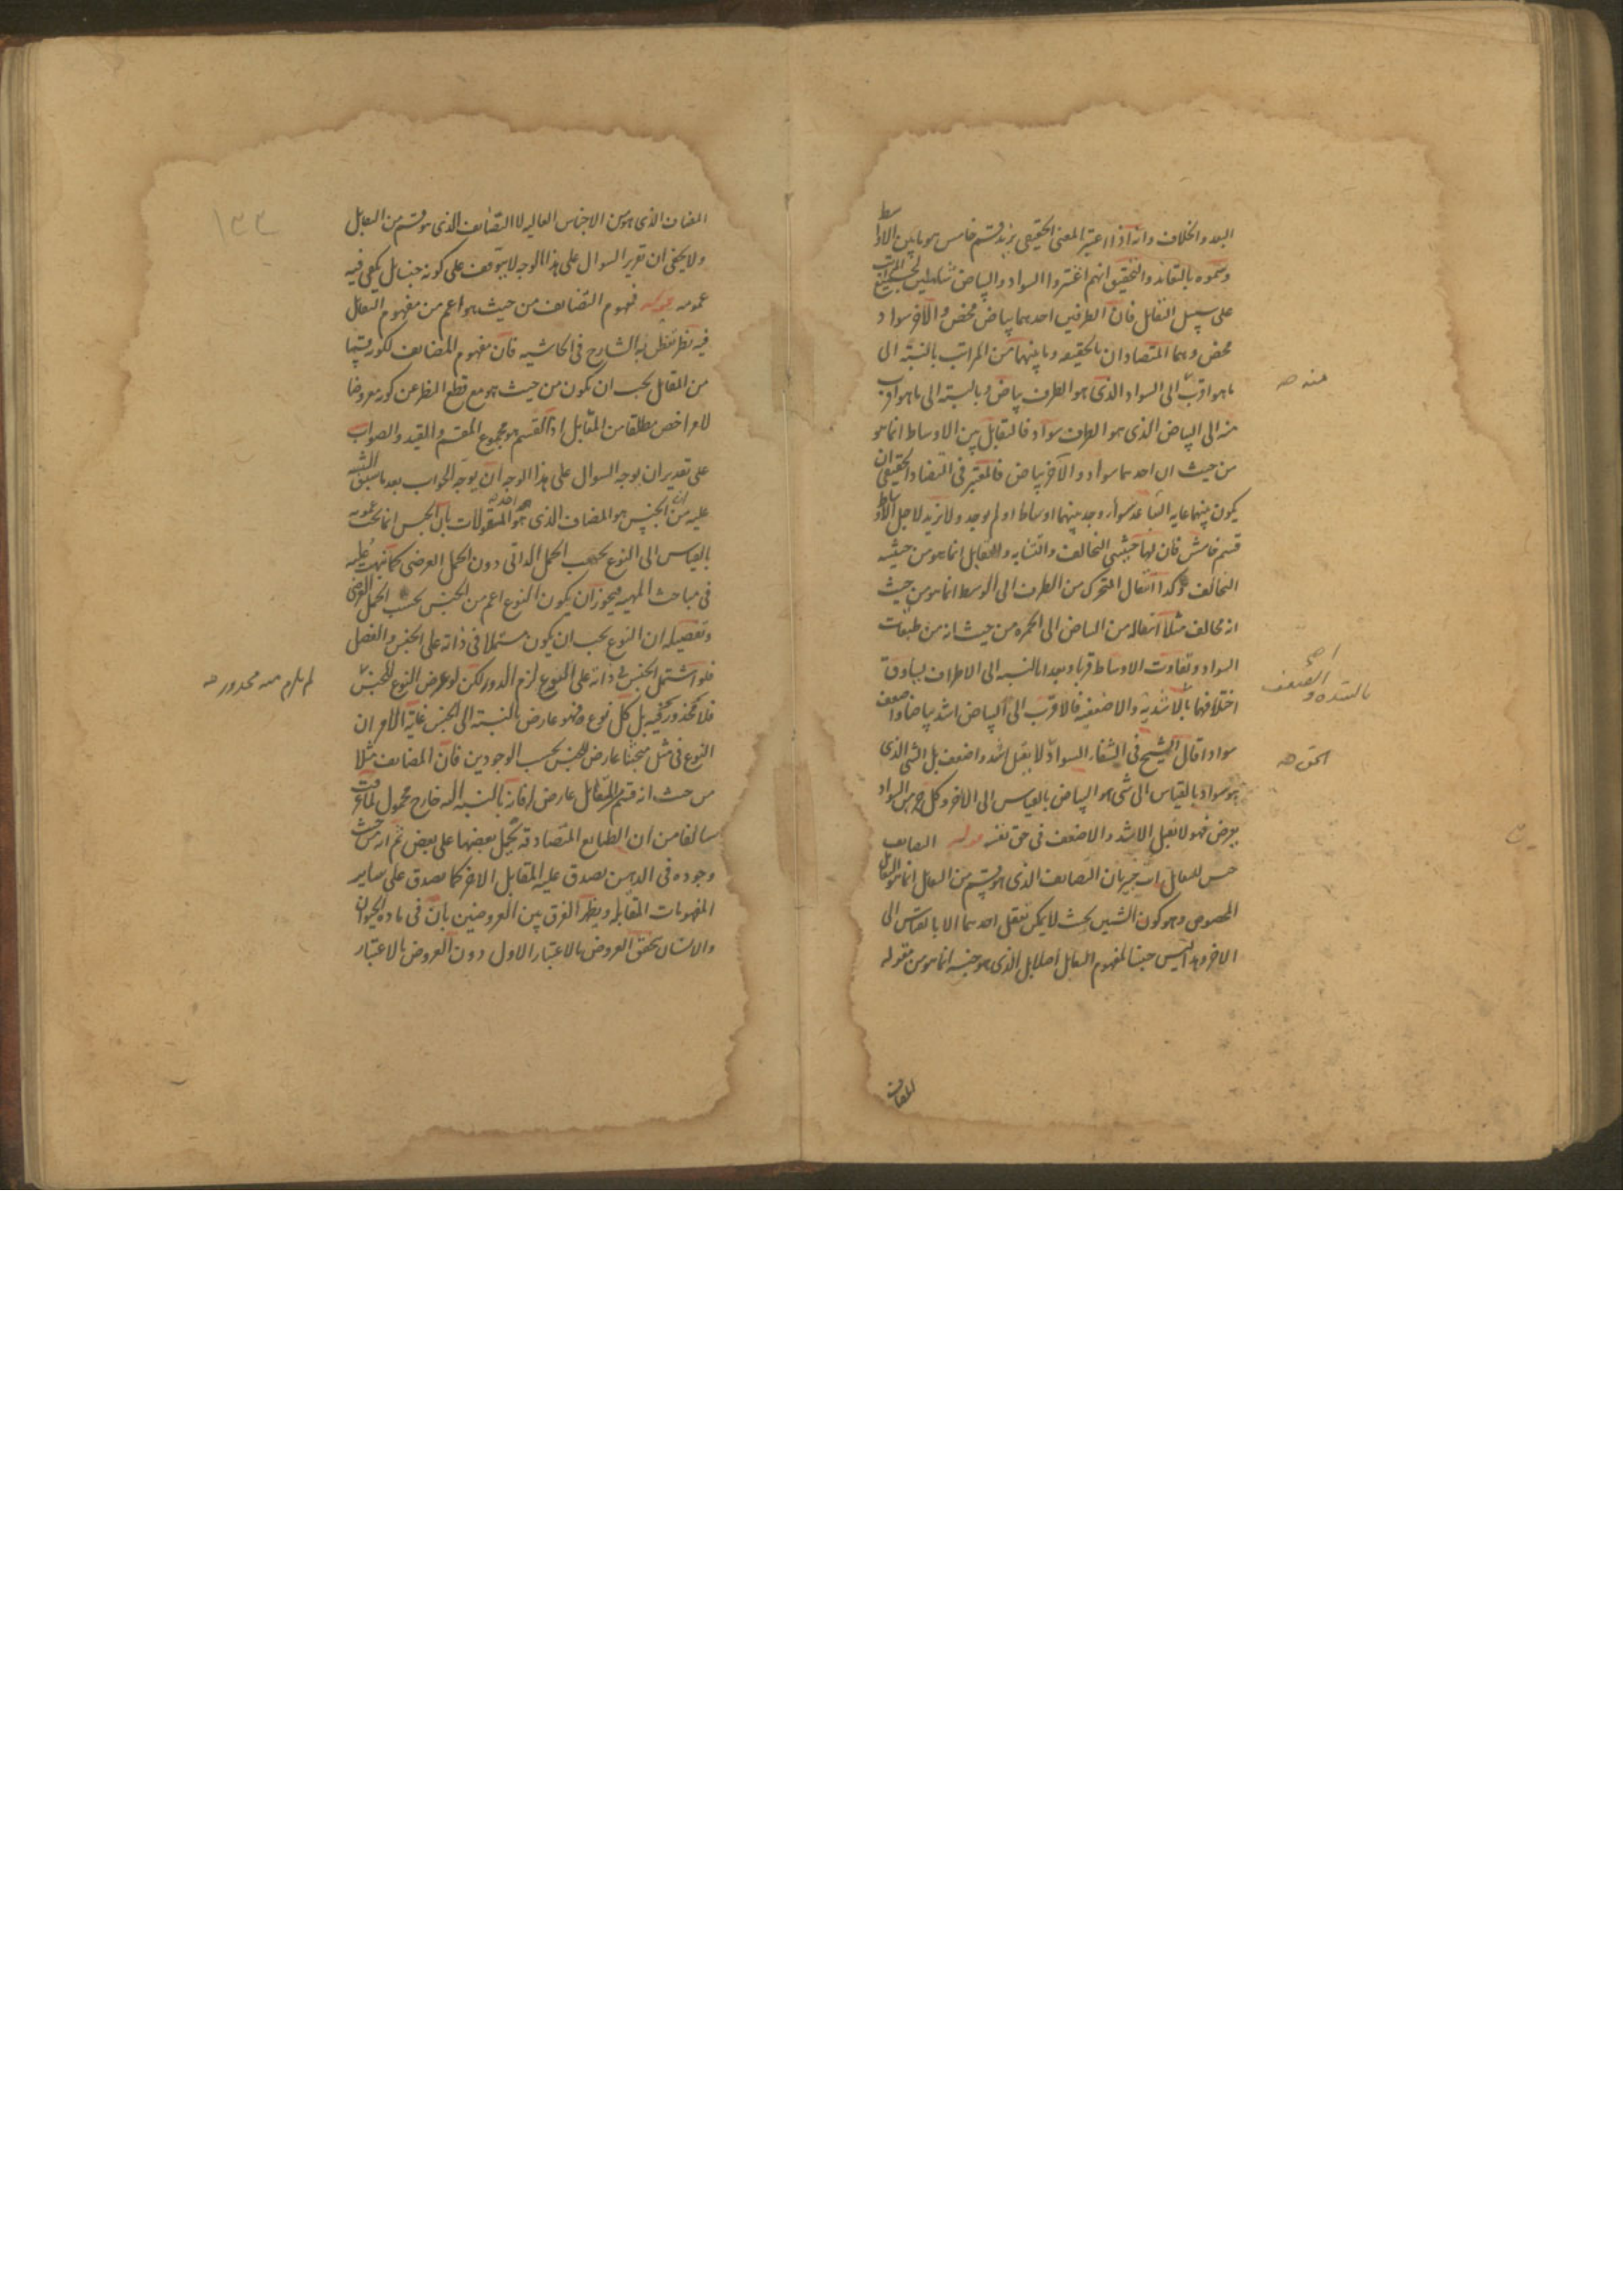 البعد والخلاف وانه اذا اعتبر المعنى الحقيقى يزيد قسم خامس هو ما بين الاوساط
وسموه بالتعاند والتحقيق انهم اعتبروا السواد والبياض شاملين لجميع المراتب
على سبيل التقابل فان الطرفين احدهما بياض محض والآخر سواد
محض وهما المتضادان بالحقيقه وما بينهما من المراتب بالنسبة الى
ما هو اقرب الى السواد الذى هو الطرف بياض وبالنسبة الى ما هو اقرب
منه الى البياض الذى هو الطرف سواد فالتقابل بين الاوساط انما هو
من حيث ان احدهما سواد والآخر بياض فالمعتبر فى التضاد الحقيقى ان
يكون بينهما غايه التباعد سواء وجد بينهما اوساط او لم يوجد ولا يزيد لاجل الاوساط
قسم خامس فان لها حيثيتى التخالف والتشابه والتقابل انما هو من حيثيه
التخالف وكذا انتقال المتحرك من الطرف الى الوسط انما هو من حيث
انه مخالف مثلا انتقاله من البياض الى الحمره من حيث انه من طبقات
السواد وتفاوت الاوساط قربا وبعدا بالنسبه الى الاطراف يساوق
اختلافها بالاشديه والاضعفيه فالاقرب الى البياض اشد بياضا واضعف
سوادا قال الشيخ فى الشفاء السواد لا يقبل اشد واضعف بل الشئ الذى
هو سواد بالقياس الى شئ هو البياض بالقياس الى الآخر وكل جزء من السواد
يعرض فهو لا يقبل الاشد والاضعف فى حق نفسه قوله التضايف
جنس للتقابل انت خبير بان التضايف الذى هو قسم من التقابل انما هو التقابل
المخصوص وهو كون الشيئين بحيث لا يمكن تعقل احدهما الا بالقياس الى
الاخر وهذا ليس جنسا لمفهوم التقابل اصلا بل الذى هو جنسه انما هو من مقوله
المضاف
منه صه
بالشده والضعف اصح
الحق صه
المضاف الذى هو من الاجناس العاليه لا التضايف الذى هو قسم من التقابل
ولا يخفى ان تقرير السوال على هذا الوجه لا يتوقف على كونه جنسا بل يكفى فيه
عمومه قوله فمفهوم التضايف من حيث هو اعم من مفهوم التقابل
فيه نظر تفطن به الشارح فى الحاشيه فان مفهوم المضايف لكونه قسما
من المقابل يجب ان يكون من حيث هو مع قطع النظر عن كونه معروضا
لامر اخص مطلقا من المقابل اذ القسم هو مجموع المقسم والقيد والصواب
على تقدير ان يوجه السوال على هذا الوجه ان يوجه الجواب بعد ما سبق التنبيه
عليه من ان الجنس هو المضاف الذى هو احد المقولات بان الجنس انما يجب عمومه
بالقياس الى النوع بحسب الحمل الذاتى دون الحمل العرضى كما نبهت عليه
فى مباحث المهيه فيجوز ان يكون النوع اعم من الجنس بحسب الحمل العرضى
وتفصيله ان النوع يجب ان يكون مشتملا فى ذاته على الجنس والفصل
فلو اشتمل الجنس فى ذاته على النوع لزم الدور لكن لو عرض النوع للجنس
فلا محذور فيه بل كل نوع فهو عارض بالنسبة الى الجنس غاية الامر ان
النوع فى مثل مبحثنا عارض للجنس بحسب الوجودين فان المضايف مثلا
من حيث انه قسم للتقابل عارض له فانه بالنسبه اليه خارج محمول لما عرفت
سالفا من ان الطبايع المتصادقه يحمل بعضها على بعض ثم انه من حيث
وجوده فى الذهن يصدق عليه المقابل الاخر كما يصدق على ساير
المفهومات المتقابله ويظهر الفرق بين العروضين بان فى ماده الحيوان
والانسان تحقق العروض بالاعتبار الاول دون العروض بالاعتبار
لم يلزم منه محذور صه
١٣٣